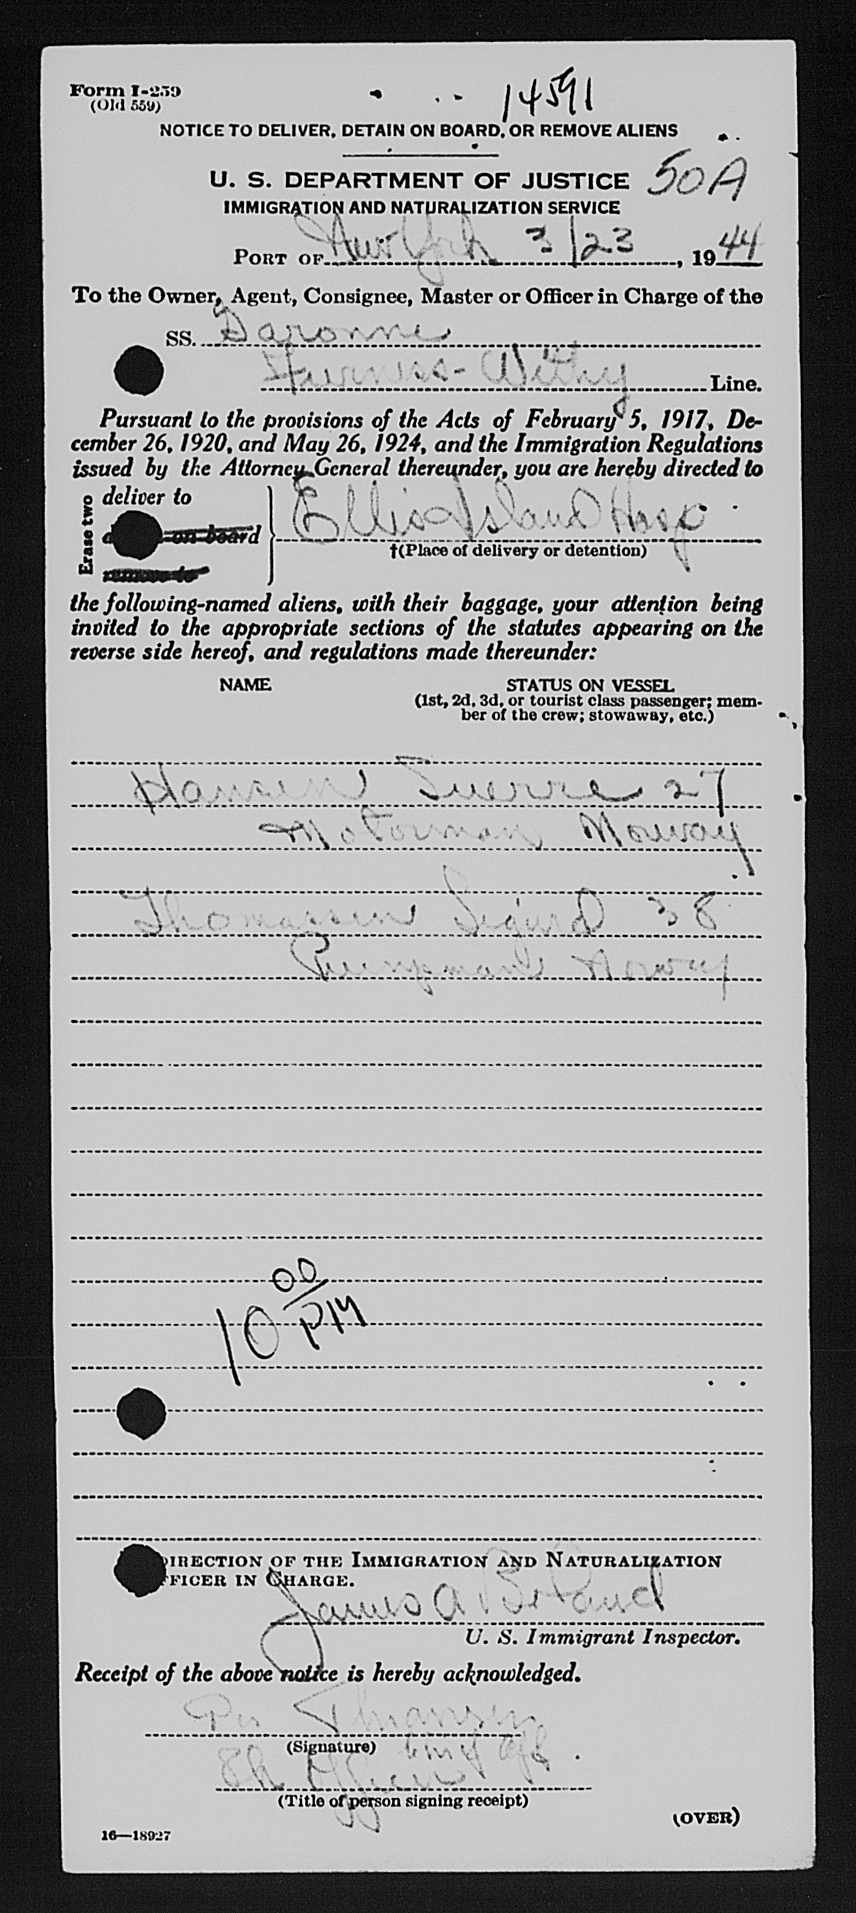 Form I-259
(Old 559)
14591
NOTICE TO DELIVER, DETAIN ON BOARD, OR REMOVE ALIENS
U. S. DEPARTMENT OF JUSTICE 50A
IMMIGRATION AND NATURALIZATION SERVICE
PORT OF New York 3/23, 1944
To the Owner, Agent, Consignee, Master or Officer in Charge of the
SS. Daronne
Furness-Withy Line.
Pursuant to the provisions of the Acts of February 5, 1917, De-
cember 26, 1920, and May 26, 1924, and the Immigration Regulations
issued by the Attorney General thereunder, you are hereby directed to
Erase two
deliver to
on board
remove to
Ellis Island Hosp
†(Place of delivery or detention)
the following-named aliens, with their baggage, your attention being
invited to the appropriate sections of the statutes appearing on the
reverse side hereof, and regulations made thereunder:
NAME STATUS ON VESSEL
(1st, 2d, 3d, or tourist class passenger; mem-
ber of the crew; stowaway, etc.)
Hansen Suerre 27
Motorman Norway
Thomassen Sigurd 38
Pumpman Norway
10 00 PM
DIRECTION OF THE IMMIGRATION AND NATURALIZATION
FFICER IN CHARGE.
James A
U. S. Immigrant Inspector.
Receipt of the above notice is hereby acknowledged.
(Signature)
Officer
(Title of person signing receipt)
(OVER)
16—18927